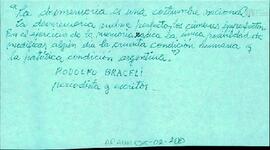 "La desmemoria es una costumbre nacional.
La desmemoria pudre, perfecta, los crímenes
En el ejercicio de la memoria radica la única posibilidad de
modificar algún día la cruenta condición humana y
la patética condición argentina."
RODOLFO BRACELI
periodista y escritor